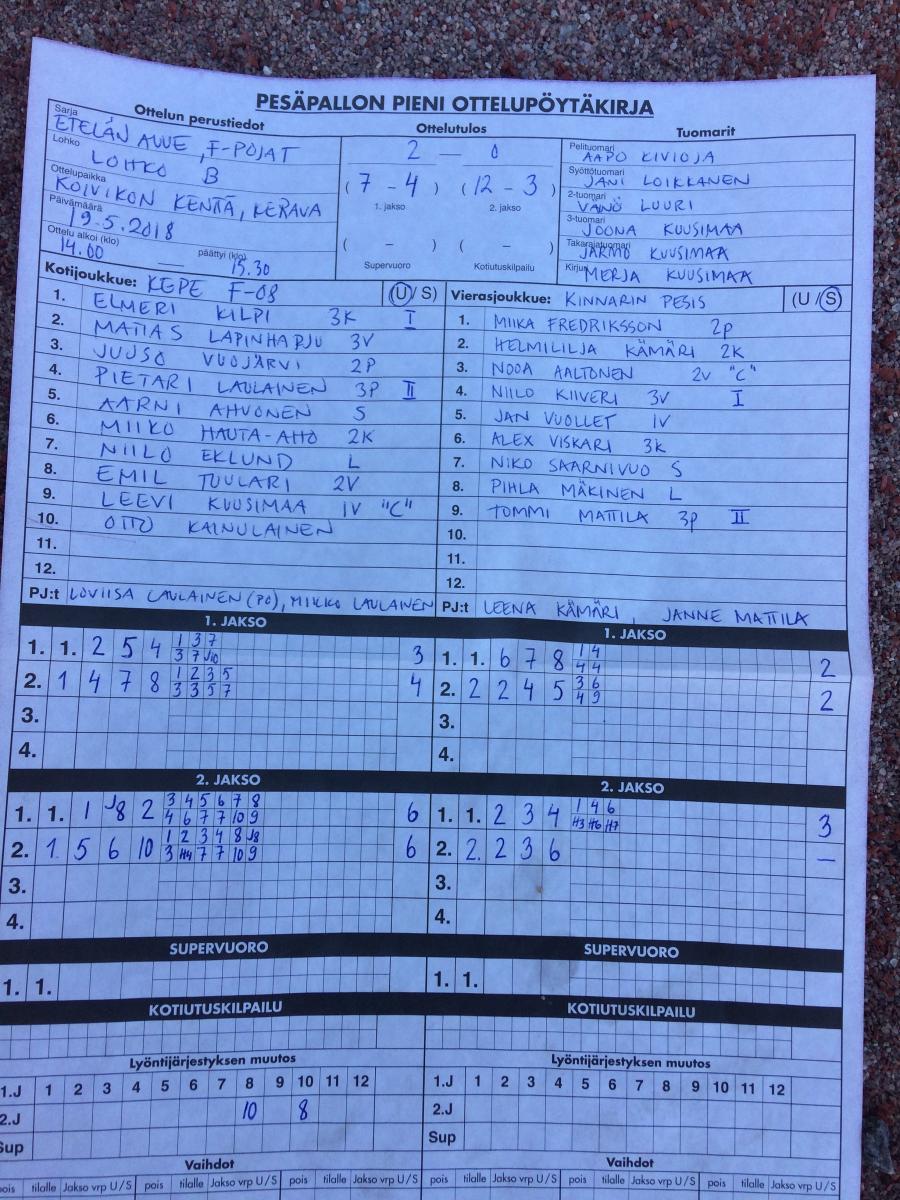 PESÄPALLON PIENI OTTELUPÖYTÄKIRJA
Ottelun perustiedot
Sarja ETELÄN ALUE, F-POJAT
Lohko LOHKO B
Ottelupaikka KOIVIKON KENTÄ, KERAVA
Päivämäärä 19.5.2018
Ottelu alkoi (klo) 14.00 päättyi (klo) 15.30
Ottelutulos
2 — 0
(7 - 4) (12 - 3)
1. jakso 2. jakso
( - ) ( - )
Supervuoro Kotiutuskilpailu
Tuomarit
Pelituomari AAPO KIVIOJA
Syöttötuomari JANI LOIKKANEN
2-tuomari VÄINÖ LUURI
3-tuomari JOONA KUUSIMAA
Takarajatuomari JARMO KUUSIMAA
Kirjuri MERJA KUUSIMAA
Kotijoukkue: KEPE F-08 (U/S)
1. ELMERI KILPI 3K I
2. MATIAS LAPINHARJU 3V
3. JUUSO VUOJÄRVI 2P
4. PIETARI LAULAINEN 3P II
5. AARNI AHVONEN S
6. MIIKO HAUTA-AHO 2K
7. NIILO EKLUND L
8. EMIL TUULARI 2V
9. LEEVI KUUSIMAA 1V "C"
10. OTTO KAINULAINEN
11.
12.
PJ:t LOVIISA LAULAINEN (PO), MIKKO LAULAINEN
Vierasjoukkue: KINNARIN PESIS (U/S)
1. MIIKA FREDRIKSSON 2P
2. HELMILILJA KÄMÄRI 2K
3. NOOA AALTONEN 2V "C"
4. NIILO KIIVERI 3V I
5. JAN VUOLLET 1V
6. ALEX VISKARI 3K
7. NIKO SAARNIVUO S
8. PIHLA MÄKINEN L
9. TOMMI MATTILA 3P II
10.
11.
12.
PJ:t LEENA KÄMÄRI, JANNE MATTILA
1. JAKSO
1. 1. 2 5 4 1 3 7 3
3 7 J10
2. 1 4 7 8 1 2 3 5 4
3 3 5 7
3.
4.
1. JAKSO
1. 1. 6 7 8 1 4 2
4 4
2. 2 2 4 5 3 6 2
4 9
3.
4.
2. JAKSO
1. 1. 1 J8 2 3 4 5 6 7 8 6
4 6 7 7 10 9
2. 1. 5 6 10 1 2 3 4 8 J8 6
3 H4 7 7 10 9
3.
4.
2. JAKSO
1. 1. 2 3 4 1 4 6 3
H3 H6 H7
2. 2. 2 3 6 —
3.
4.
SUPERVUORO
1. 1.
SUPERVUORO
1. 1.
KOTIUTUSKILPAILU
KOTIUTUSKILPAILU
Lyöntijärjestyksen muutos
1.J 1 2 3 4 5 6 7 8 9 10 11 12
2.J 10 8
Sup
Lyöntijärjestyksen muutos
1.J 1 2 3 4 5 6 7 8 9 10 11 12
2.J
Sup
Vaihdot
pois tilalle Jakso vrp U/S pois tilalle Jakso vrp U/S pois tilalle Jakso vrp U/S
Vaihdot
pois tilalle Jakso vrp U/S pois tilalle Jakso vrp U/S pois tilalle Jakso vrp U/S